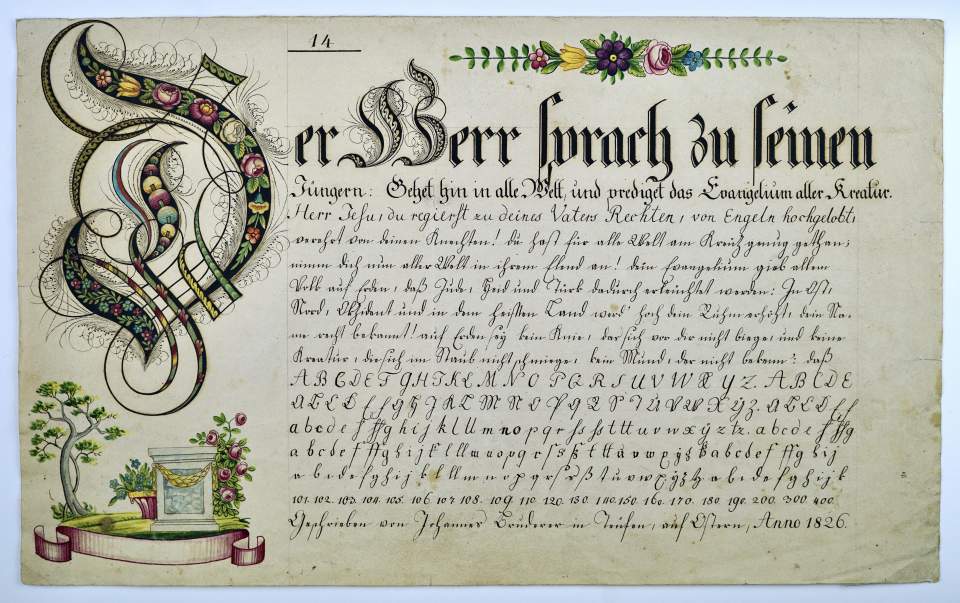 14
Der Herr sprach zu seinen
Jüngern: Gehet hin in alle Welt, und prediget das Evangelium aller Kreatur.
Herr Jesu, du regierst zu deines Vaters Rechten, von Engeln hochgelobt,
verehrt von deinen Knechten! du hast für alle Welt am Kreutz genug gethan;
nimm dich nun aller Welt in ihrem Elend an! dein Evangelium gieb allem
Volk auf Erden, daß Jude, Heid und Türk dadurch erleuchtet werden: In Ost,
Nord, Okzident und in dem heissten Land werd' hoch dein Ruhm erhöht, dein Na-
me recht bekannt! auf Erden sey kein Knie, der sich vor dir nicht biege, und keine
Kreatur, die sich im Staub nicht schmiege, kein Mund, der nicht bekenn': daß
A B C D E F G H I K L M N O P Q R S U V W X Y Z. A B C D E
A B C D E f g H J K L M N O P Q R S T U V W X Y Z. A B C D E f
a b c d e f ff g h i j k l ll m n o p q r s ss st t tt u v w x ÿ z tz. a b c d e f ff g
a b c d e f ff g h i j k l ll m n o p q r s ss ß t tt u v w x ÿ z tz a b c d e f ff g h i j k
a b c d e f g h i j k l ll m n o p q r s ss ß t u v w x ÿ z tz a b c d e f g h i j k
101. 102. 103. 104. 105. 106. 107. 108. 109. 110. 120. 130. 140. 150. 160. 170. 180. 190. 200. 300. 400.
Geschrieben von Johannes Bruderer in Teufen, auf Ostern, Anno 1826.